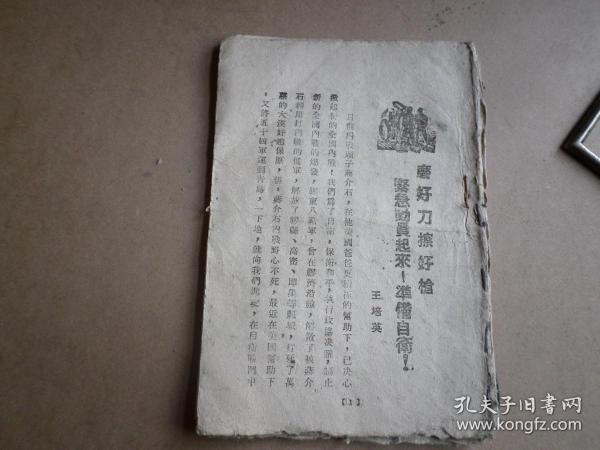 磨好刀擦好槍
緊急動員起來！準備自衛！
王培英
目前內戰頭子蔣介石，在他美國爸爸反動派的幫助下，已決心
發起新的全國內戰！我們為了自衛，保衛和平，執行政協決議，制止
新的全國內戰的爆發，膠東八路軍，曾在膠濟沿線，解放了被蔣介
石利用打內戰的僞軍，解放了膠縣、高密、即墨等縣城，打死了萬
惡的大漢奸趙保原，但，蔣介石內戰野心不死，最近在美國幫助下
，又將五十四軍運到青島，一下地，就向我們進攻，在自衛戰鬥中
【1】
孔夫子旧書网
www.kongfz.com